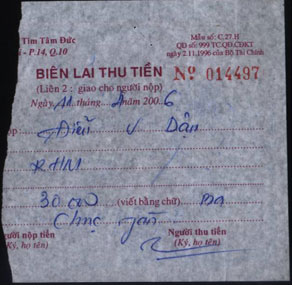 Tim Tâm Đức
- P.14, Q.10
Mẫu số: C.27.H
QĐ số: 999 TC.QĐ.CĐKT
ngày 2.11.1996 của Bộ Tài Chính
BIÊN LAI THU TIỀN Nº 014497
(Liên 2 : giao cho người nộp)
Ngày 11 tháng năm 200 6
ộp Dận
RHM
30 000 (viết bằng chữ) Ba
chục
gười nộp tiền Người thu tiền
(Ký, họ tên) (Ký, họ tên)